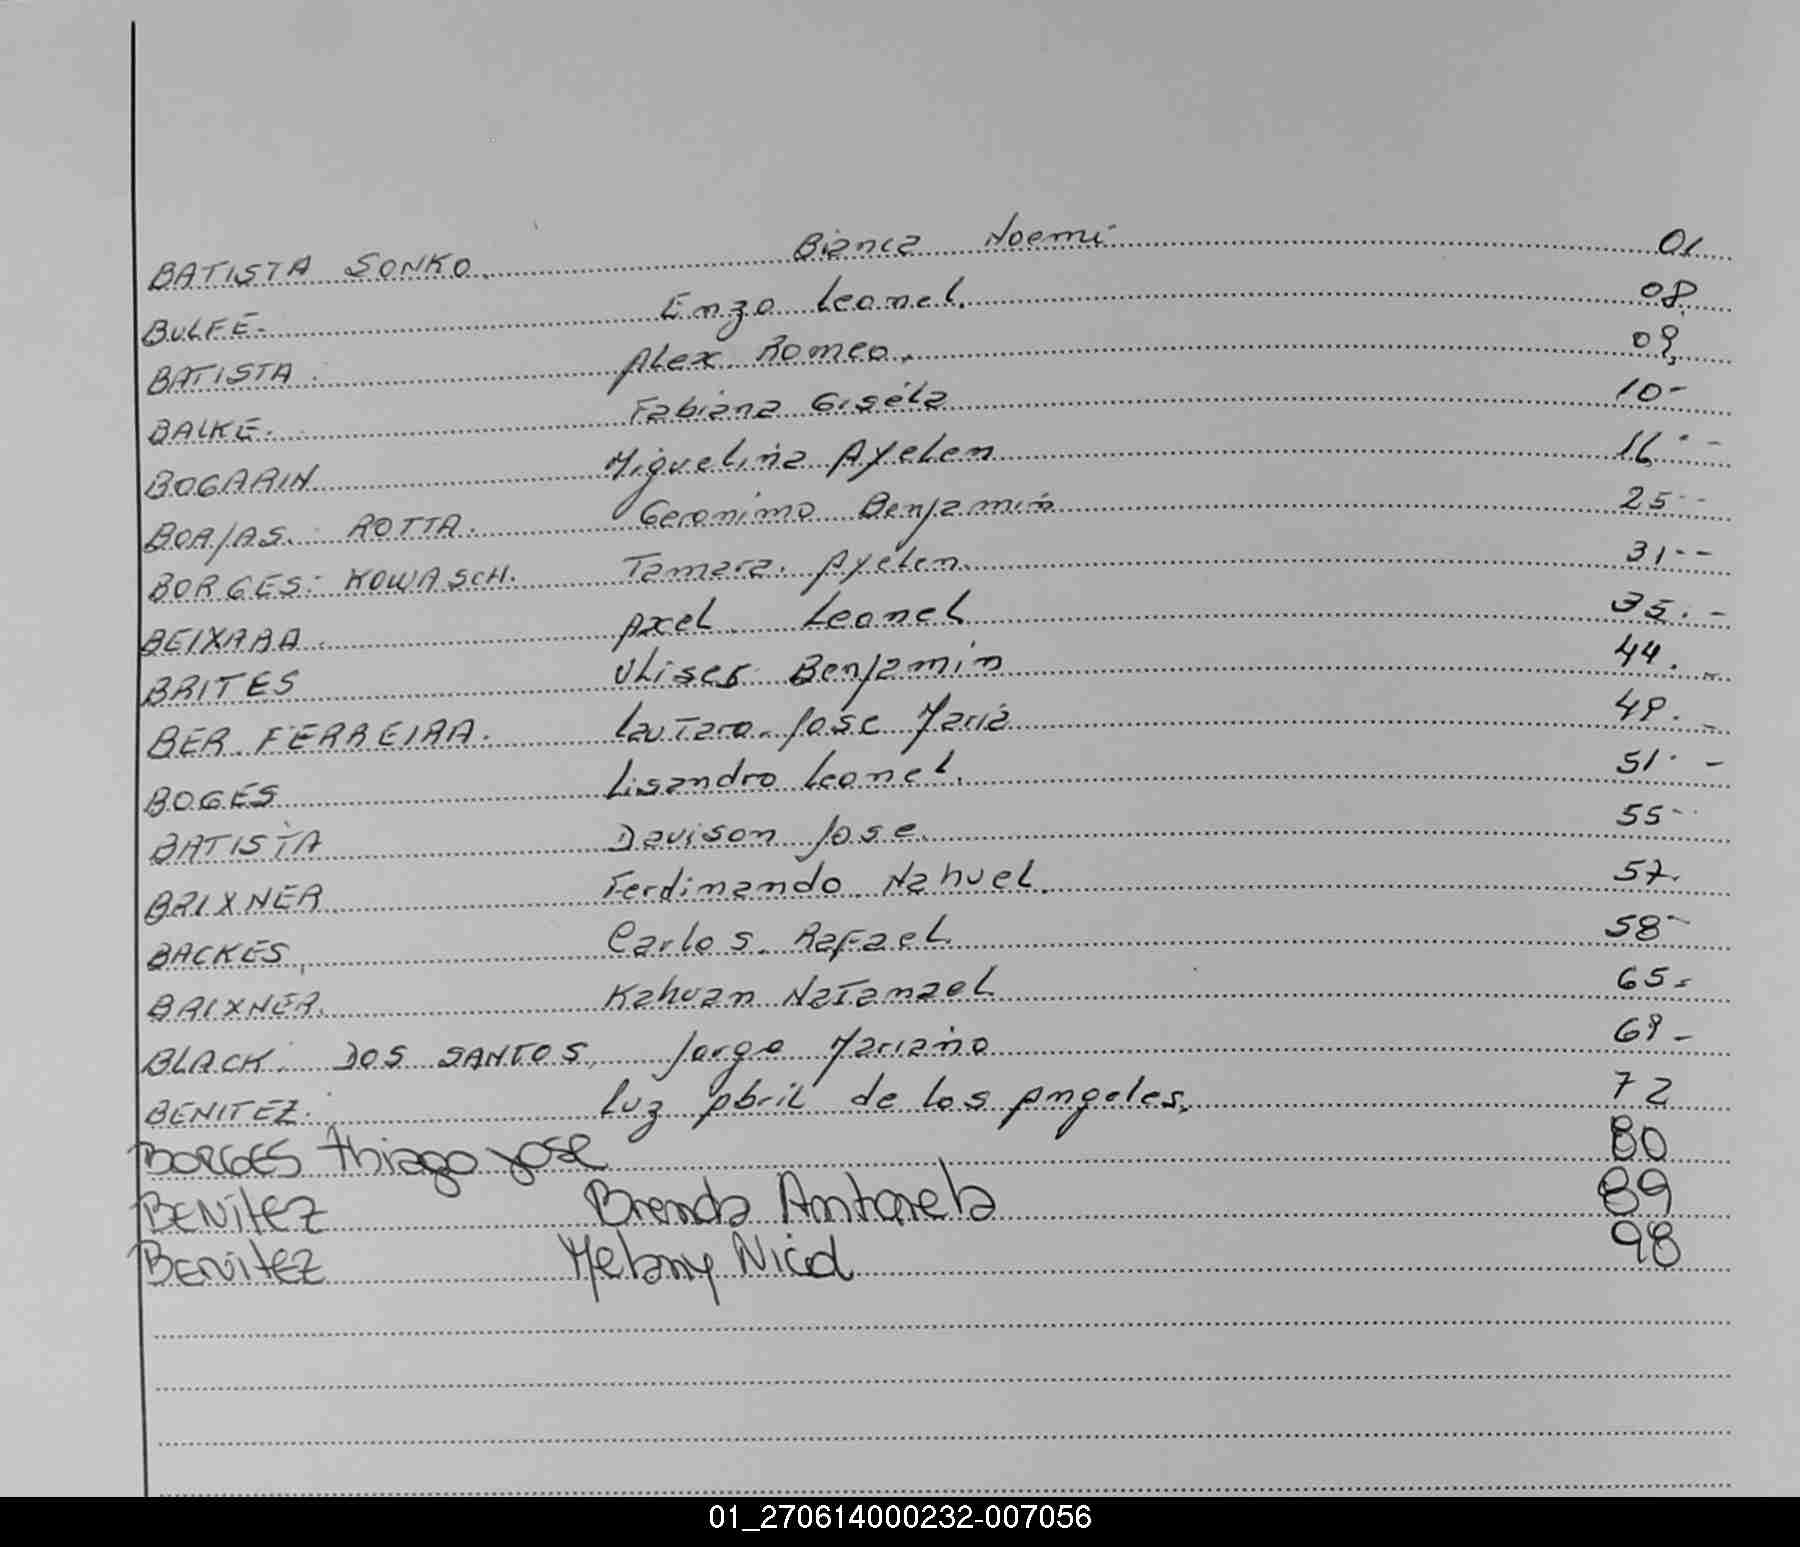 BATISTA SONKO. Bianca Noemi 01
BULFE. Enzo Leonel. 08.
BATISTA. Alex Romeo. 09,
BALKE. Fabiana Gisela 10-
BOGARIN Miguelina Ayelen 16 -
BORJAS. ROTTA. Geronimo Benjamin 25--
BORGES: KOWASCH. Tamara. Ayelen. 31--
BEIXABA. Axel Leonel 35.-
BRITES Ulises Benjamin 44.-
BER FERREIRA. Lautaro Jose Maria 49.-
BOGES Lisandro Leonel. 51.-
BATISTA Davison Jose. 55-
BRIXNER Ferdinando Nahuel. 57.
BACKES, Carlos. Rafael 58-
BRIXNER. Kahuan Natanael 65.-
BLACK. DOS SANTOS, Jorge Mariano 69-
BENITEZ. Luz Abril de los Angeles, 72
BORGES Thiago Jose 80
BENITEZ Brenda Antonela 89
BENITEZ Melany Nicol 98
01_270614000232-007056